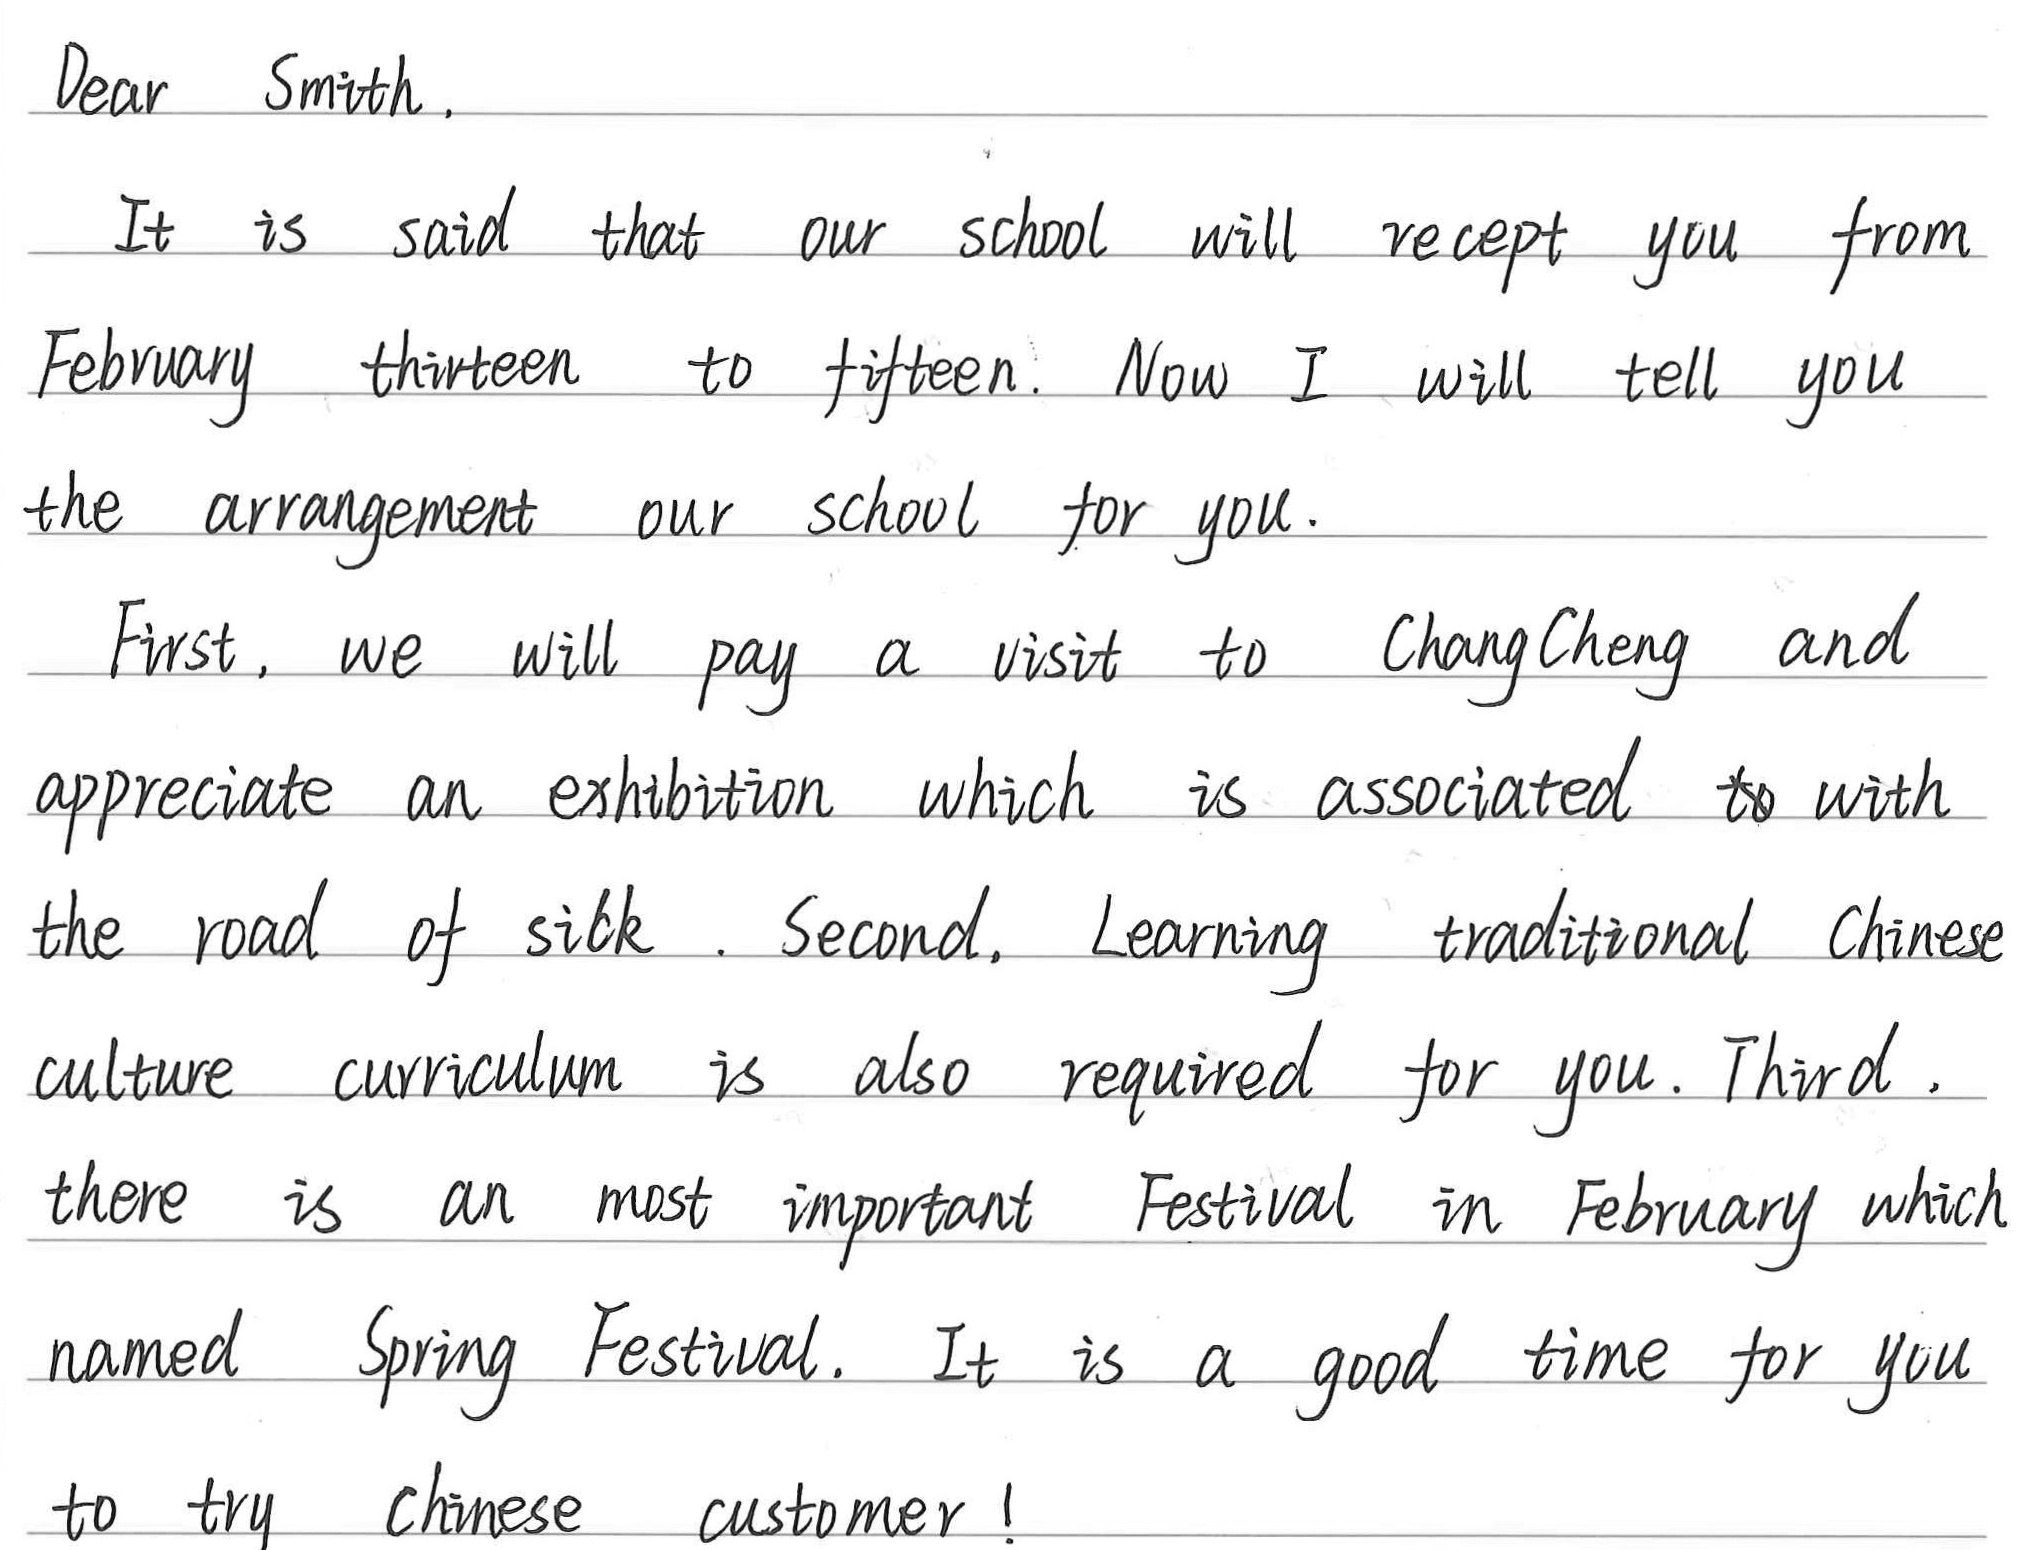 Dear Smith,
It is said that our school will recept you from
February thirteen to fifteen. Now I will tell you
the arrangement our school for you.
First, we will pay a visit to ChangCheng and
appreciate an exhibition which is associated to with
the road of silk. Second, Learning traditional Chinese
culture curriculum is also required for you. Third,
there is an most important Festival in February which
named Spring Festival. It is a good time for you
to try Chinese customer!